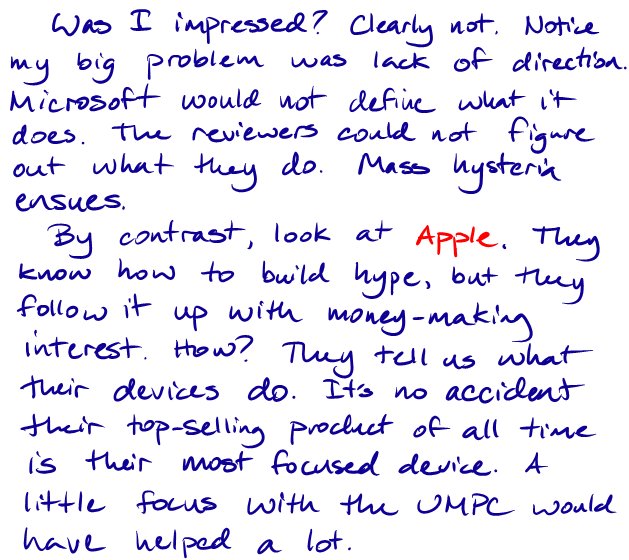 Was I impressed? Clearly not. Notice
my big problem was lack of direction.
Microsoft would not define what it
does. The reviewers could not figure
out what they do. Mass hysteria
ensues.
By contrast, look at Apple. They
know how to build hype, but they
follow it up with money-making
interest. How? They tell us what
their devices do. It's no accident
their top-selling product of all time
is their most focused device. A
little focus with the UMPC would
have helped a lot.